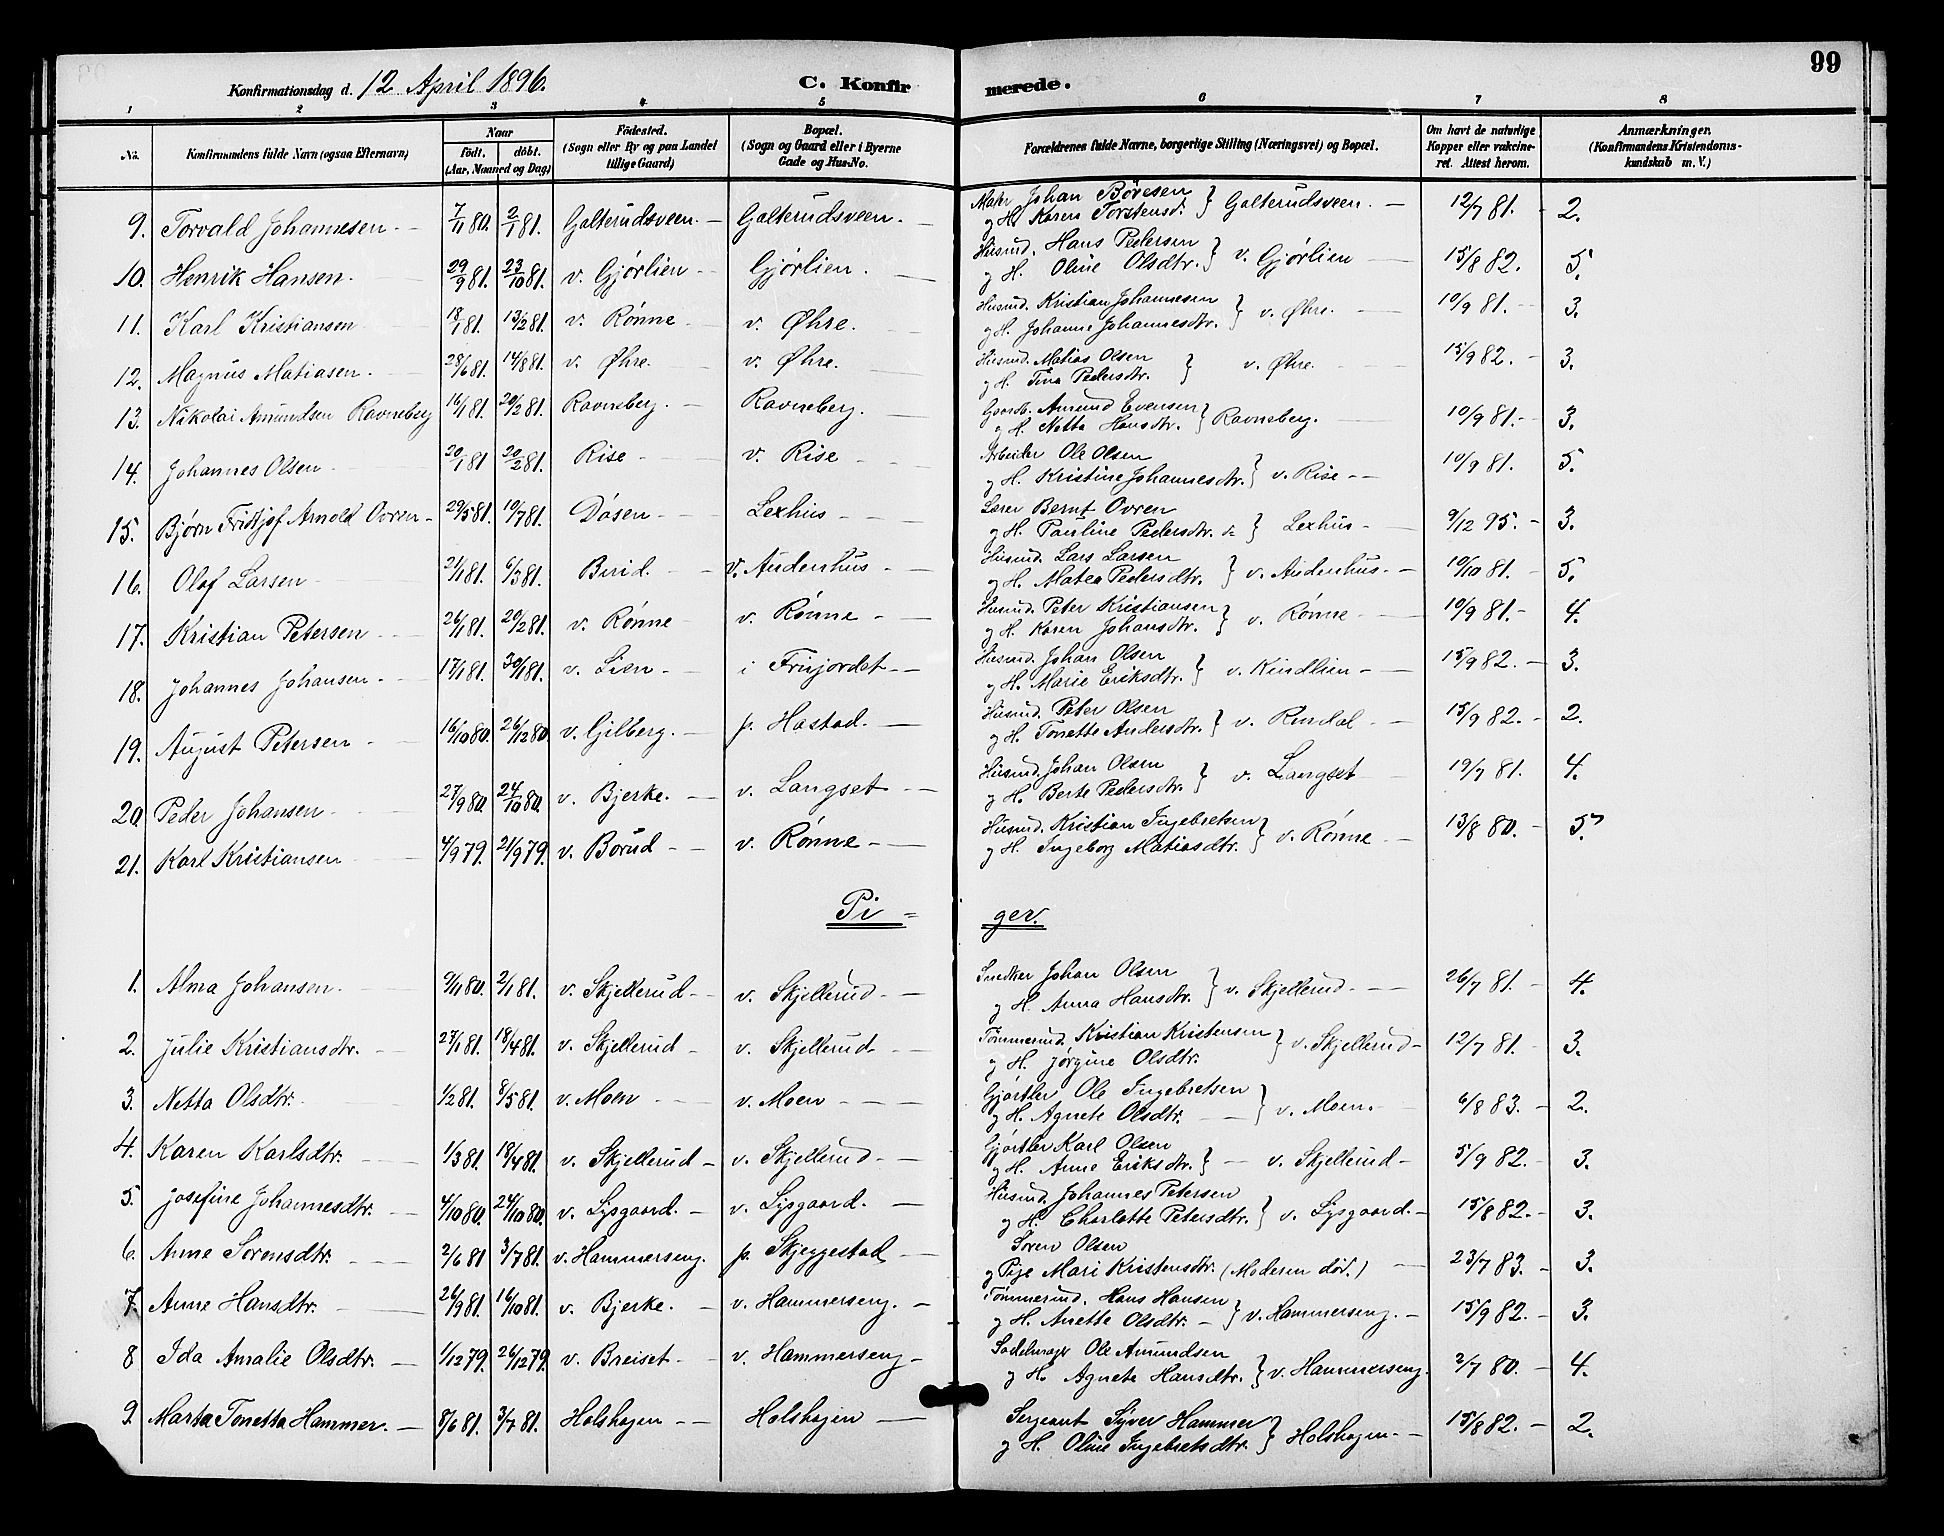 99
Konfirmationsdag d. 12 April 1896. C. Konfirmerede.
1 2 3 4 5 6 7 8
No. Konfirmandens fulde Navn (ogsaa Efternavn) Naar födt, döbt. (Aar, Maaned og Dag) Födested. (Sogn eller By og paa Landet tillige Gaard) Bopæl. (Sogn og Gaard eller i Byerne Gade og Hus-No. Forældrenes fulde Navne, borgerlige Stilling (Næringsvei) og Bopæl. Om havt de naturlige Kopper eller vakcineret. Attest herom. Anmærkninger. (Konfirmandens Kristendomskundskab m. V.)
9. Torvald Johannesen 7/11 80. 2/1 81. Galterudsveen. Galterudsveen. Johan Börresen og H. Karen Torstensd. } Galterudsveen. 12/7 81. 2.
10. Henrik Hansen. 29/9 81. 23/10 81. v. Gjörlien Gjörlien. Husmd. Hans Pedersen og H. Oline Olsdtr. } v. Gjörlien 15/8 82. 5.
11. Karl Kristiansen 18/1 81. 13/2 81. v. Rönne v. Øhre. Husmd. Kristian Johannesen og H. Johanne Johannesdtr. } v. Øhre. 10/9 81. 3.
12. Magnus Matiasen. 28/6 81. 14/8 81. v. Øhre. v. Øhre. Husmd. Matias Olsen og H. Tina Pedersdtr. } v. Øhre. 15/9 82. 3.
13. Nikolai Amundsen Ravneberg 16/1 81. 20/2 81. Ravneberg. Ravneberg. Gaardb. Amund Evensen og H. Netta Hansdtr. } Ravneberg. 10/9 81. 3.
14. Johannes Olsen 20/1 81 20/2 81. Rise v. Rise Arbeider Ole Olsen og H. Kristine Johannesdtr. } v. Rise 10/9 81. 5.
15. Björn Fridtjof Arnold Ovren 29/5 81. 10/7 81. Dösen Lexhus Lærer Bernt Ovren og H. Pauline Pedersdtr. } Lexhus 9/12 95. 3.
16. Olaf Larsen 21/1 81. 6/3 81. Birid. v. Audenhus Husmd. Lars Larsen og H. Matea Pedersdtr. } v. Audenhus. 10/10 81. 5.
17. Kristian Petersen 26/1 81. 20/2 81. v. Rönne v. Rönne Husmd. Peter Kristiansen og H. Karen Johansdtr. } v. Rönne 10/9 81. 4.
18. Johannes Johansen 17/1 81. 30/1 81. v. Lien i Frisjordet Husmd. Johan Olsen og H. Marie Eriksdtr. } v. Kindlien 15/9 82. 3.
19. August Petersen 16/10 80. 26/12 80. v. Gilberg. p. Hastad. Husmd. Peter Olsen og H. Tonette Andersdtr. } v. Rindal 15/9 82. 2.
20. Peder Johansen 27/9 80. 24/10 80. v. Bjerke. v. Langset Husmd. Johan Olsen og H. Berte Pedersdtr. } v. Langset 19/7 81. 4.
21. Karl Kristiansen 4/9 79. 21/9 79. v. Borud v. Rönne Husmd. Kristian Ingebretsen og H. Ingeborg Matiasdtr. } v. Rönne 13/8 80. 5
Pi= ger.
1. Alma Johansen. 9/11 80. 2/1 81. v. Skjellerud v. Skjellerud Snedker Johan Olsen og H. Anna Hansdtr. } v. Skjellerud. 26/7 81. 4.
2. Julie Kristiansdtr. 27/1 81. 18/4 81. v. Skjellerud v. Skjellerud. Tömmermd. Kristian Kristensen og H. Jörgine Olsdtr. } v. Skjellerud 12/7 81. 3.
3. Netta Olsdtr. 1/2 81. 8/5 81. v. Moen v. Moen Gjörtler Ole Ingebretsen og H. Agnete Olsdtr. } v. Moen. 6/8 83. 2.
4. Karen Karlsdtr. 1/3 81. 18/4 81. v. Skjellerud v. Skjellerud. Gjörtler Karl Olsen og H. Anne Eriksdtr. } v. Skjellerud 5/9 82. 3.
5. Josefine Johannesdtr. 4/10 80. 24/10 80. v. Lysgaard. v. Lysgaard. Husmd. Johannes Petersen og H. Charlotte Petersdtr. } v. Lysgaard. 15/8 82. 3.
6. Anne Sörensdtr. 2/6 81 3/7 81. v. Hammerseng. p. Skjeggestad Sören Olsen og Pige Mari Kristensdtr. (Moderen död.) 23/7 83. 3.
7. Anne Hansdtr. 26/9 81. 16/10 81. v. Bjerke. v. Hammerseng. Tömmermd. Hans Hansen og H. Anette Olsdtr. } v. Hammerseng. 15/9 82. 3.
8 Ida Amalie Olsdtr. 1/12 79. 26/12 79. v. Breiset v. Hammerseng Sadelmager Ole Amundsen og H. Agnete Hansdtr. } v. Hammerseng. 2/7 80. 4.
9. Marta Tonetta Hammer. 8/6 81. 3/7 81. Holshagen Holshagen Sergeant Syver Hammer og H. Oline Ingebretsdtr. } Holshagen. 15/8 82. 2.